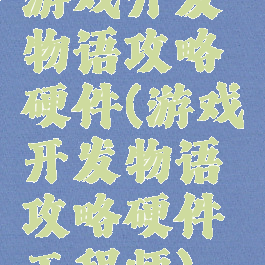 游戏开发
物语攻略
硬件(游戏
开发物语
攻略硬件
工程师)